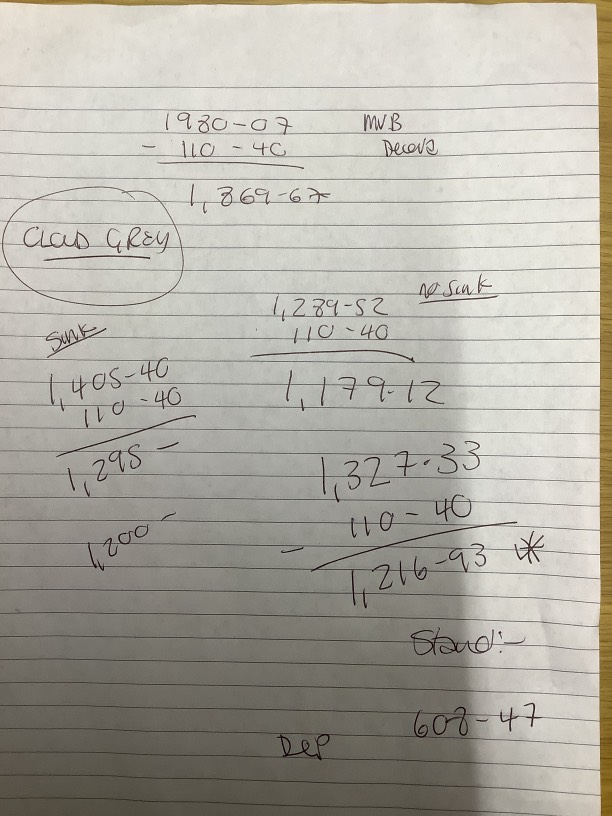 1980-07 MVB
- 110-40
1,869-67
CLOUD GREY
1,289-52 no sink
110-40
1,179-12
Sink
1,405-40
110-40
1,295-
1,200-
1,327.33
- 110-40
1,216-93 *
Stand:-
608-47
Dep